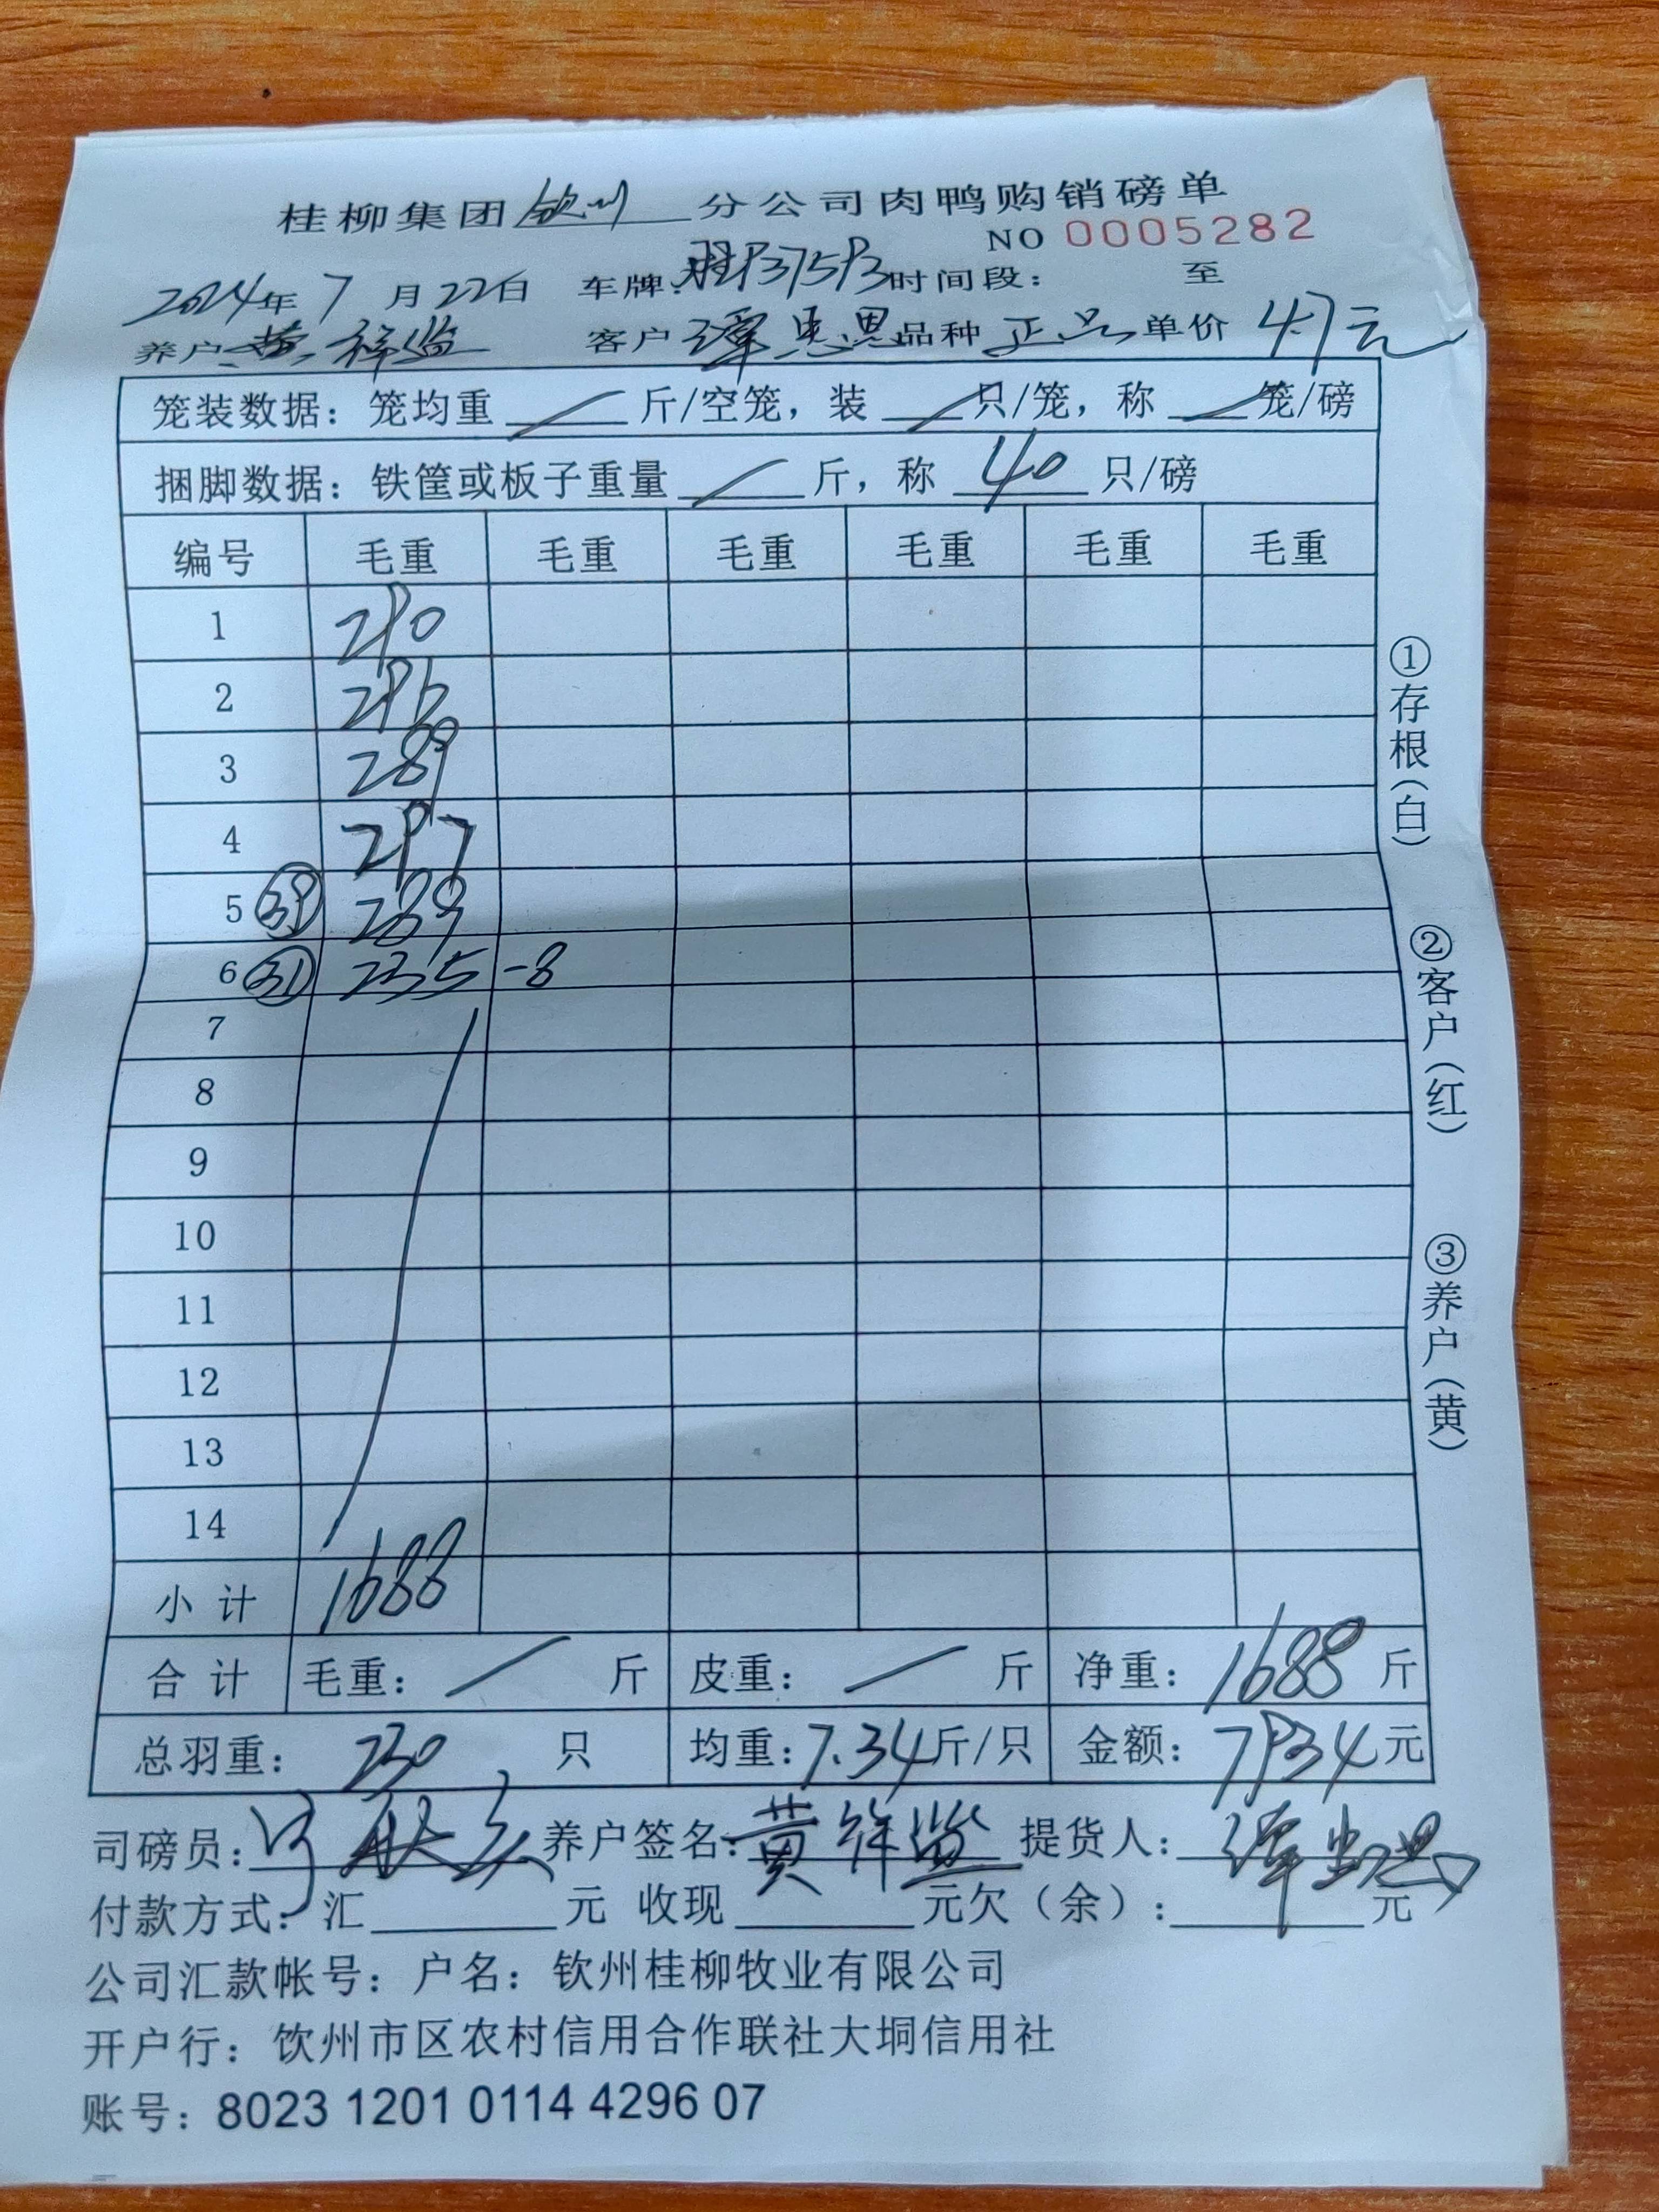 桂柳集团钦州分公司肉鸭购销磅单
NO 0005282
2024年7月22日 车牌: 时间段: 至
养户 黄祥监 客户 谭忠恩 品种 正品 单价 4.7元
笼装数据：笼均重 / 斤/空笼，装 / 只/笼，称 / 笼/磅
捆脚数据：铁筐或板子重量 / 斤，称 40 只/磅
编号 毛重 毛重 毛重 毛重 毛重 毛重
1 290
2 296
3 289
4 297
5 39 289
6 31 235 -8
7
8
9
10
11
12
13
14
小计 1688
合计 毛重: / 斤 皮重: / 斤 净重: 1688 斤
总羽重: 230 只 均重: 7.34斤/只 金额: 7934元
司磅员: 养户签名: 黄祥监 提货人: 谭忠恩
付款方式: 汇 元 收现 元欠（余）: 元
公司汇款帐号: 户名: 钦州桂柳牧业有限公司
开户行: 饮州市区农村信用合作联社大垌信用社
账号: 8023 1201 0114 4296 07
①存根（白）
②客户（红）
③养户（黄）